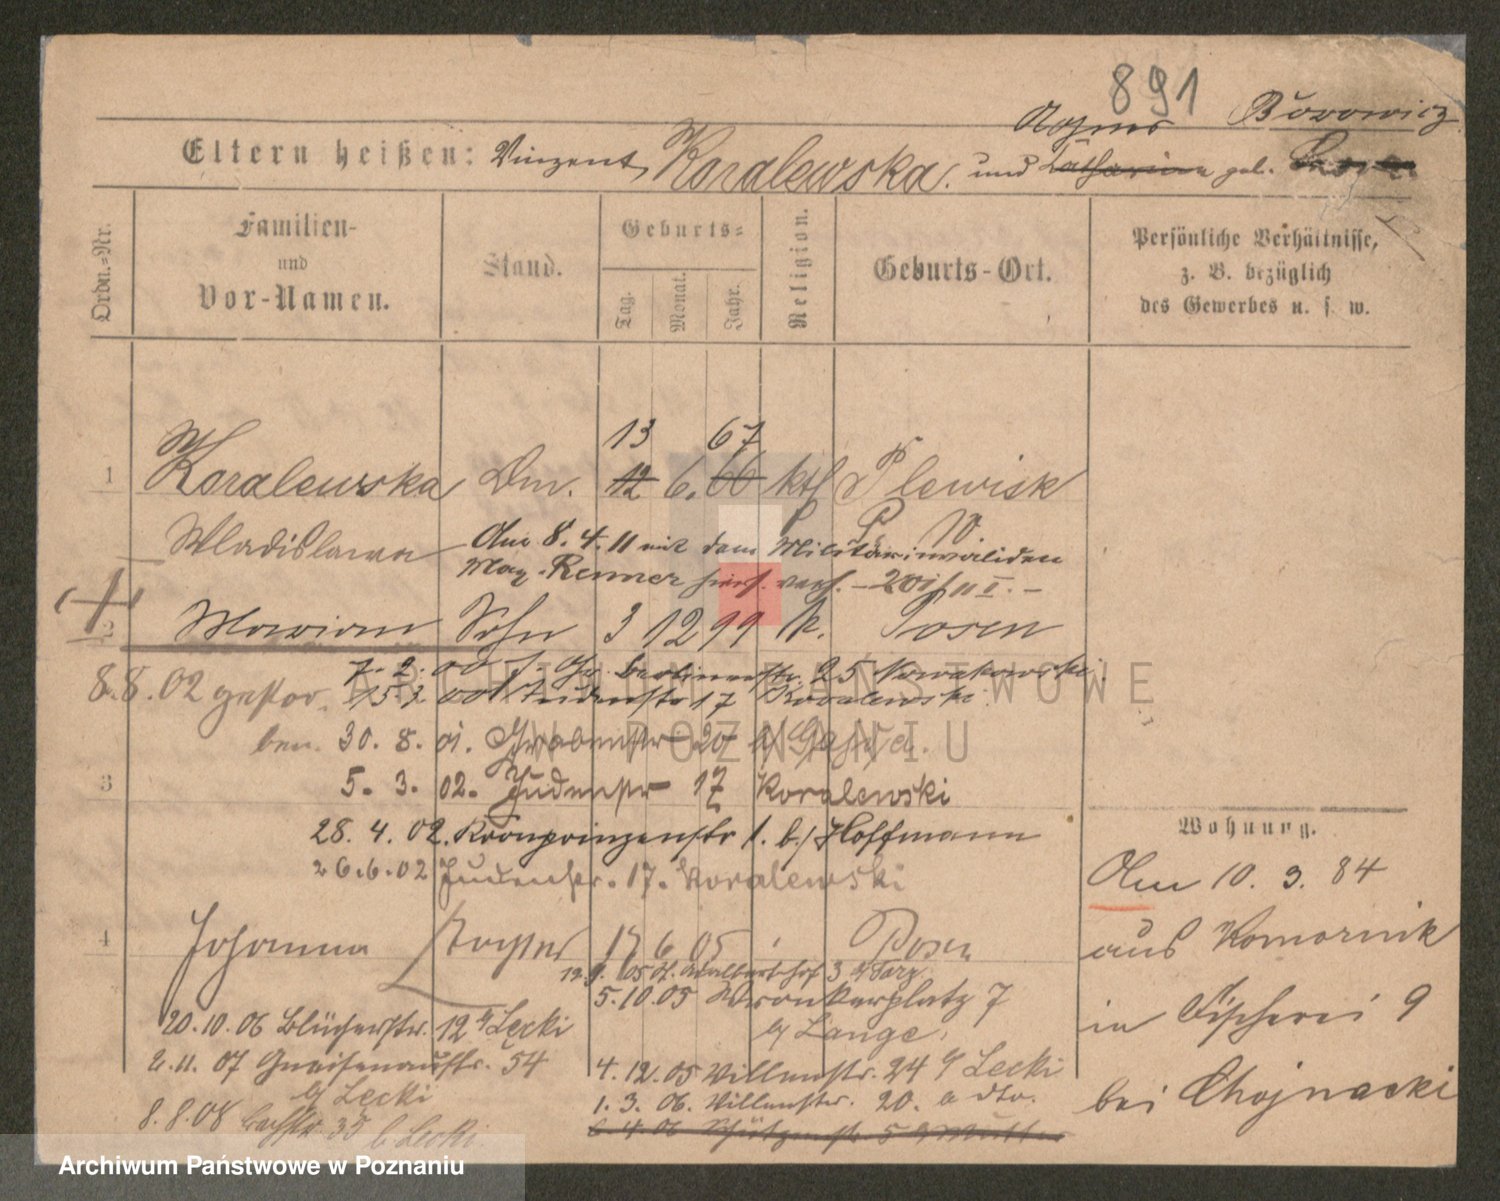 891
Agnes Borowicz
Eltern heißen: Vinzent Koralewska. und Katharina geb.
Ordn.=Nr.
Familien- und Vor-Namen.
Stand.
Geburts=
Tag. Monat. Jahr.
Religion.
Geburts-Ort.
Persönliche Verhältnisse, z. B. bezüglich des Gewerbes u. s. w.
13 67
1 Koralewska Dm. 12 6. 66 kth Plewisk
P. W.
Wladislawa Am 8. 4. 11 mit dem Militärinvaliden
Max Renner verh.
2 Marian Sohn 3 12 99 k. Posen
7. 2. 00 Berlinerstr. 25 Nowakowski.
8.8.02 gestor- 15. 00 Judenstr 17 Koralewski.
ben. 30. 8. 01. Grabenstr 20
3 5. 3. 02. Judenstr 17 Koralewski
28. 4. 02. Kronprinzenstr 1. b/ Hoffmann
26.6.02 Judenstr. 17. Koralewski
4 Johanna 17 6 05 Posen
05 Adalbertshof 3
5.10.05 Wronkerplatz 7
b/ Lange.
20.10.06 Blücherstr. 12 b/ Lecki
4.12.05 Willenstr. 24 b/ Lecki
2.11.07 Gneisenaustr. 54
b/ Lecki
1.3.06. Willenstr. 20. a dto.
8.8.08 Bachstr. 35 b Lecki.
Wohnung.
Am 10. 3. 84
aus Komornik
in Fischerei 9
bei Chojnacki
ARCHIWUM PAŃSTWOWE
W POZNANIU
Archiwum Państwowe w Poznaniu